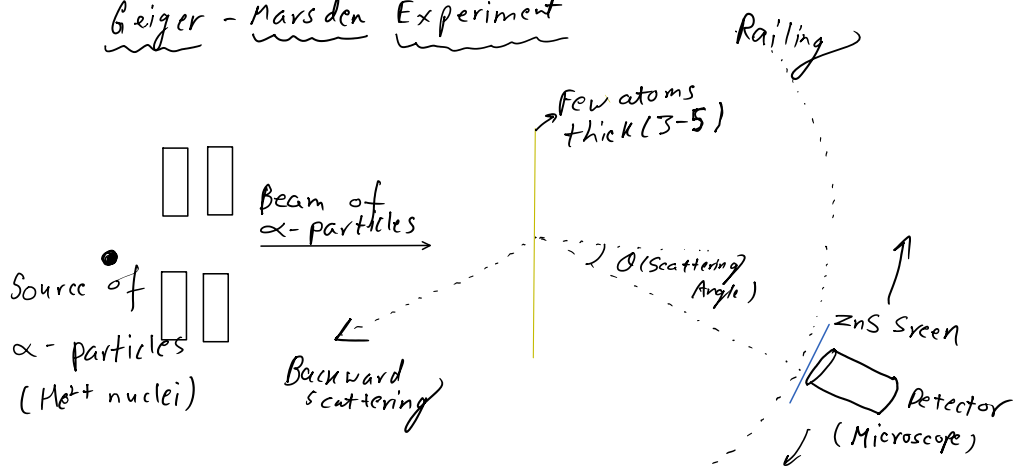 Geiger - Marsden Experiment
Railing
Few atoms
thick (3-5)
Beam of
α-particles
Source of
α- particles
(He²⁺ nuclei)
θ (Scattering
Angle)
Backward
scattering
ZnS Sreen
Detector
(Microscope)